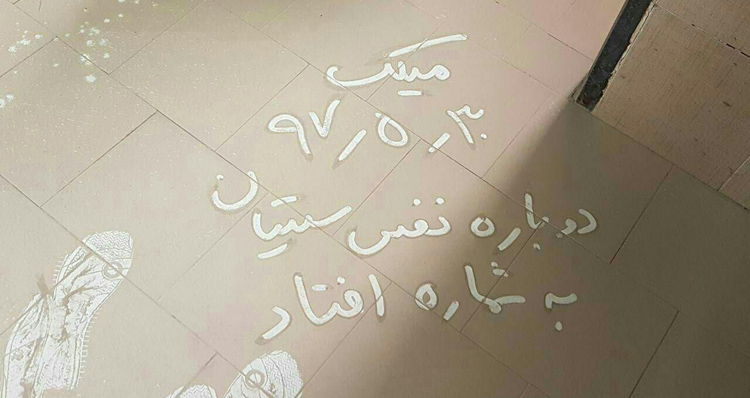 میلک
۹۷٫۵٫۳۰
دوباره نفس سیستان
به شماره افتاد